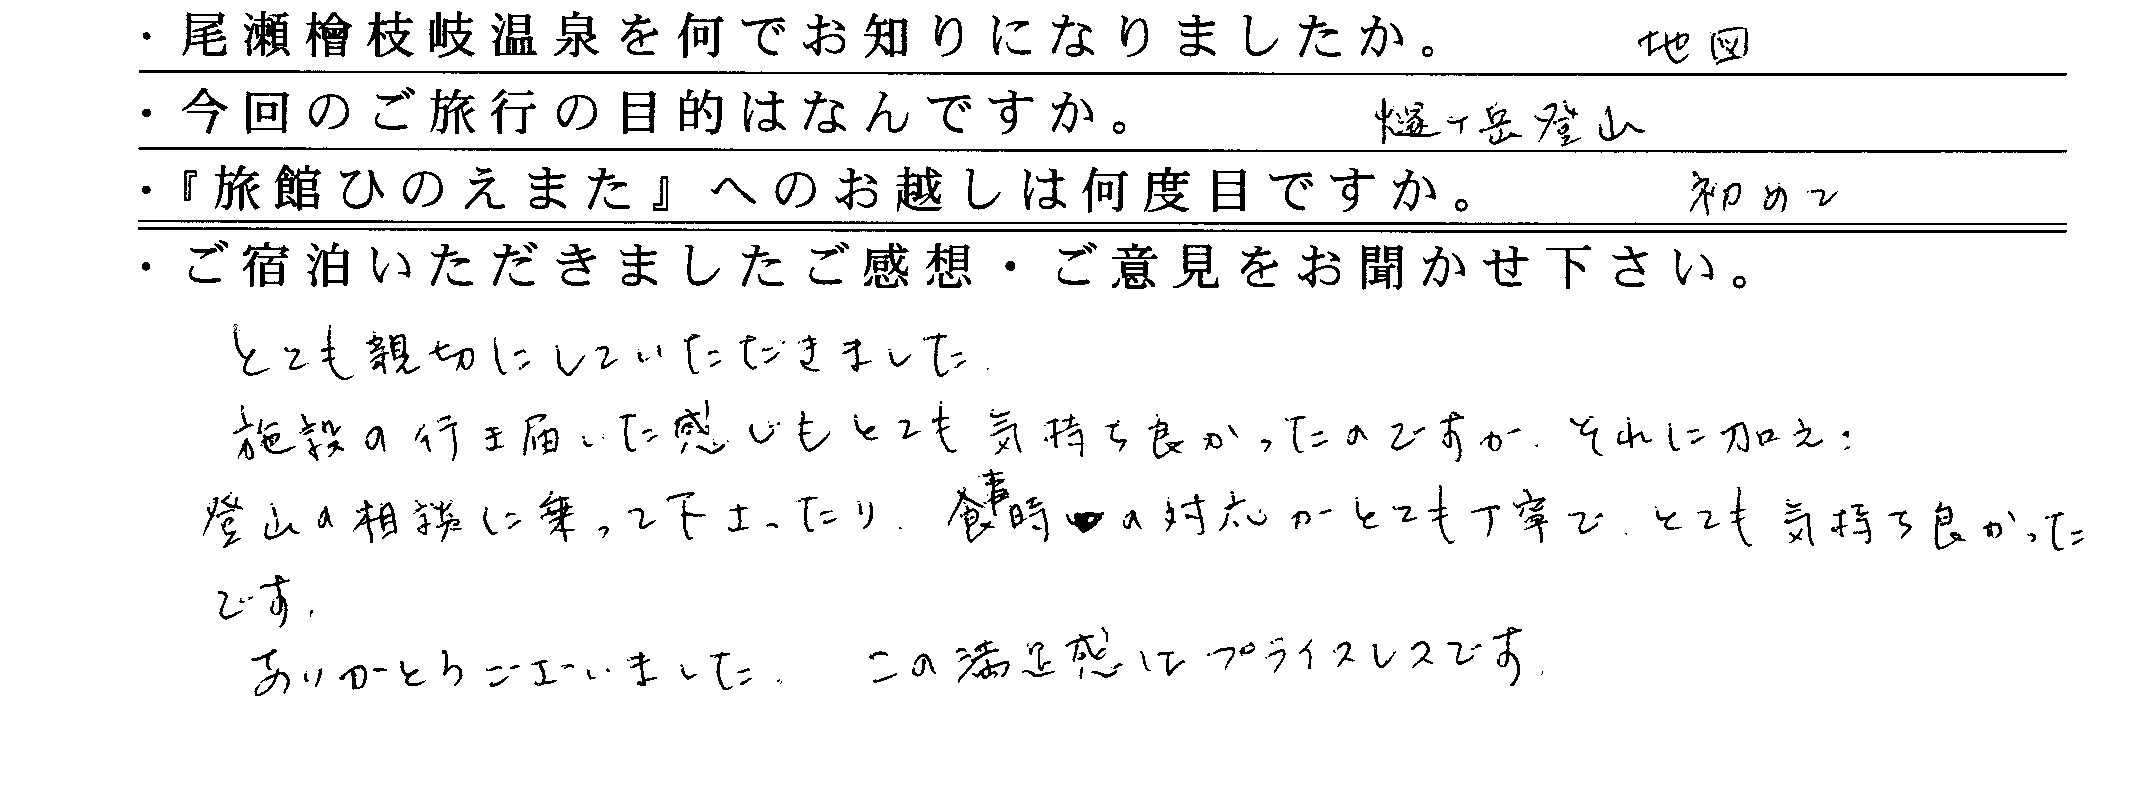 ・尾瀬檜枝岐温泉を何でお知りになりましたか。 地図
・今回のご旅行の目的はなんですか。 燧ヶ岳登山
・『旅館ひのえまた』へのお越しは何度目ですか。 初めて
・ご宿泊いただきましたご感想・ご意見をお聞かせ下さい。
とても親切にしていただきました.
施設の行き届いた感じもとても気持ち良かったのですが、それに加え、
登山の相談に乗って下さったり、食事時の対応がとても丁寧で、とても気持ち良かった
です.
ありがとうございました. この満足感はプライスレスです.